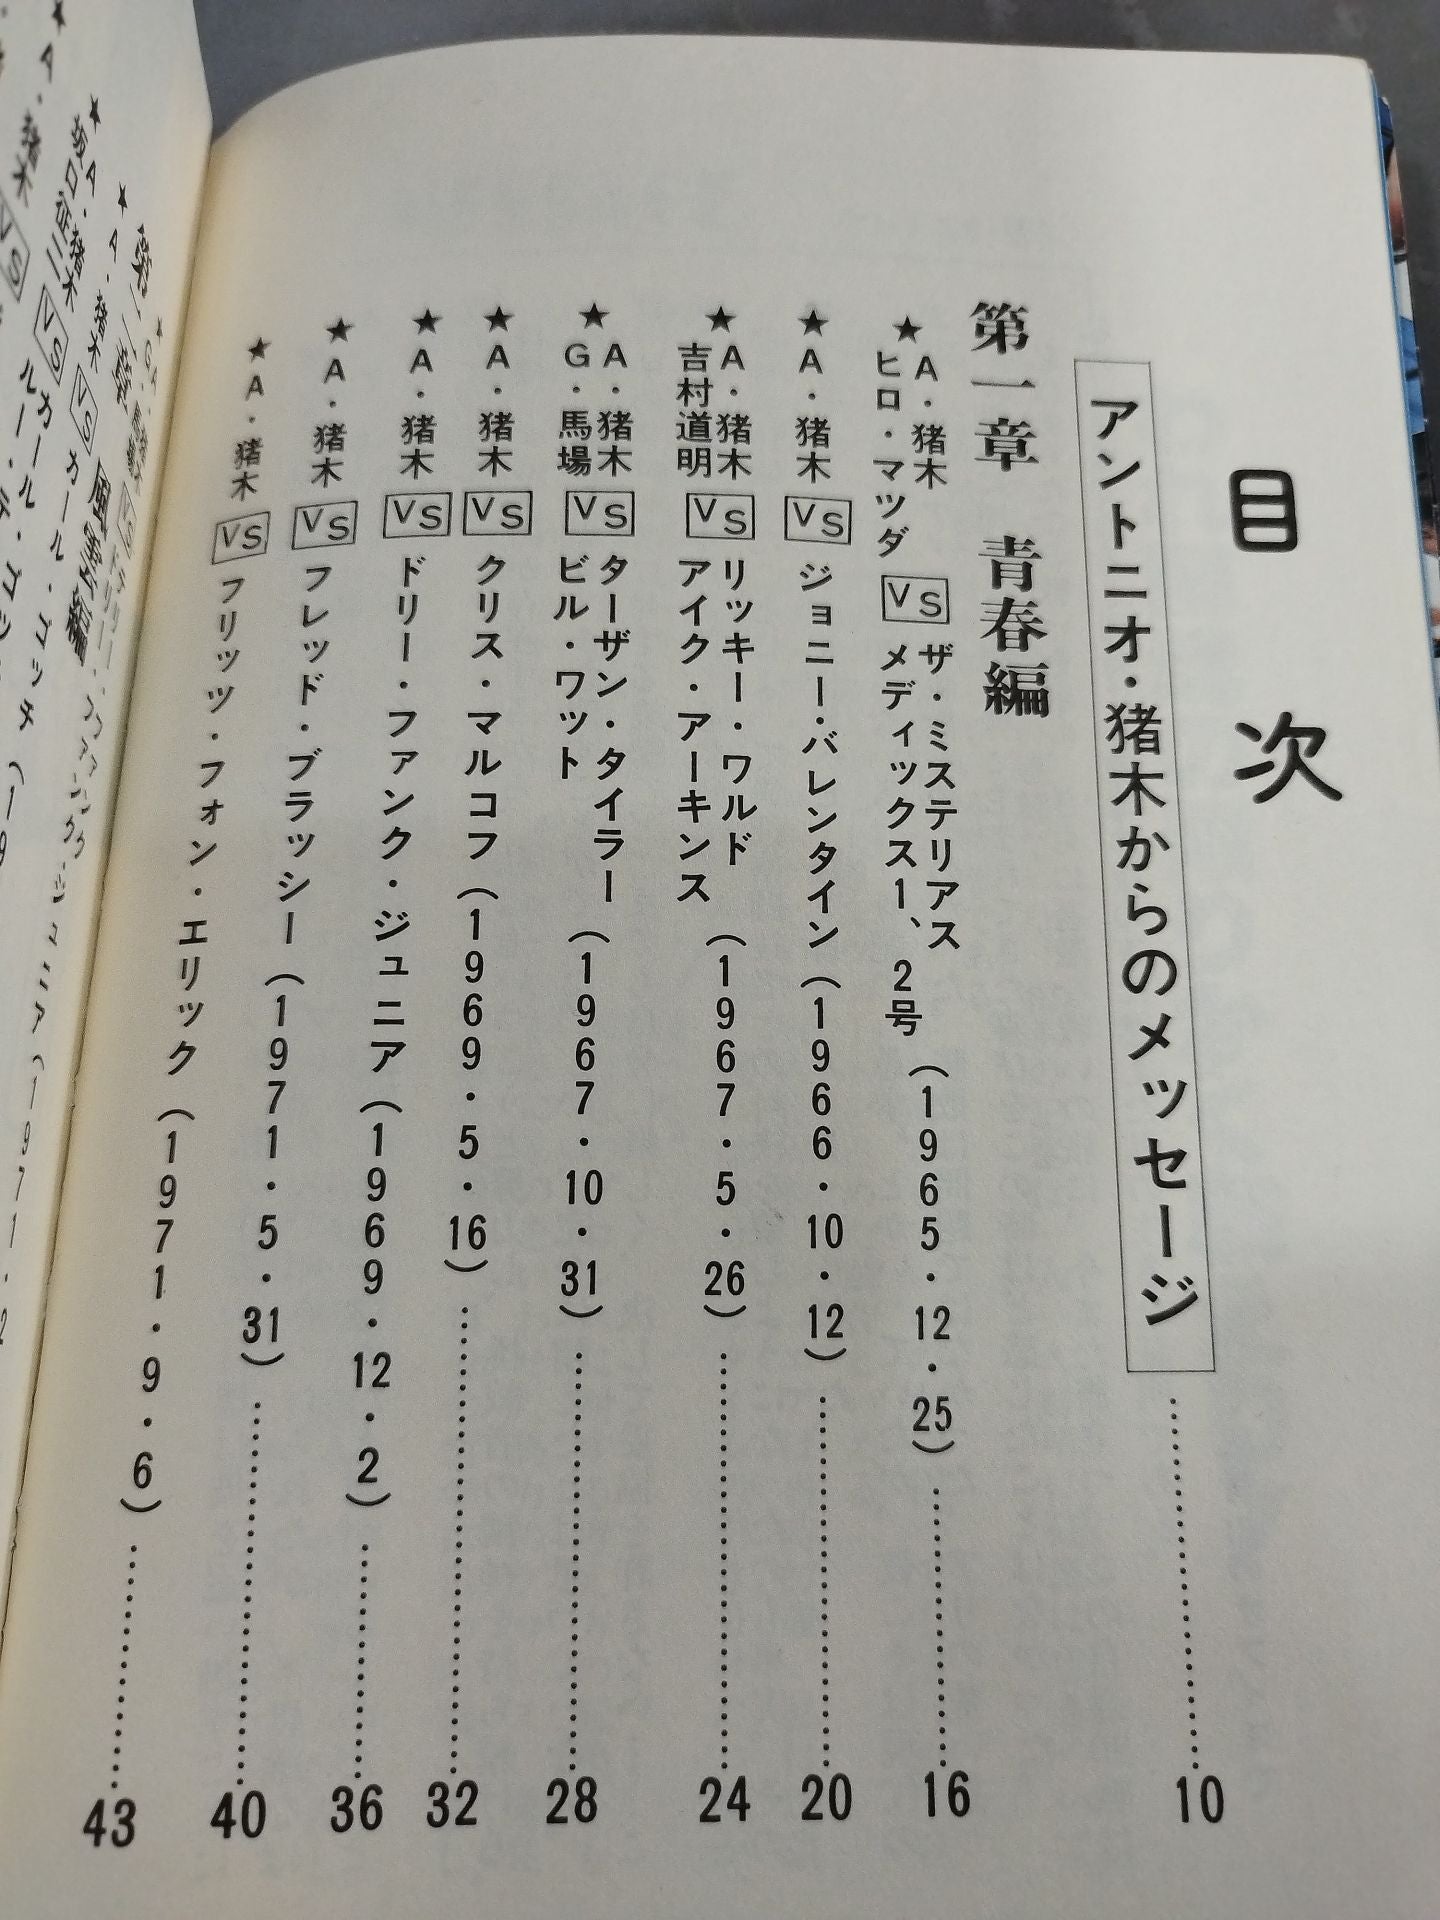 目次
アントニオ・猪木からのメッセージ……10
第一章 青春編
★A・猪木
ヒロ・マツダ
VS
ザ・ミステリアス
メディックス1、2号
(1965・12・25)……16
★A・猪木 VS ジョニー・バレンタイン(1966・10・12)……20
★A・猪木
吉村道明
VS
リッキー・ワルド
アイク・アーキンス
(1967・5・26)……24
★A・猪木
G・馬場
VS
ターザン・タイラー
ビル・ワット
(1967・10・31)……28
★A・猪木 VS クリス・マルコフ(1969・5・16)……32
★A・猪木 VS ドリー・ファンク・ジュニア(1969・12・2)……36
★A・猪木 VS フレッド・ブラッシー(1971・5・31)……40
★A・猪木 VS フリッツ・フォン・エリック(1971・9・6)……43
★A・猪木 VS カール・ゴッチ(19
★A・猪木
坂口征二
VS
カール・ゴッチ